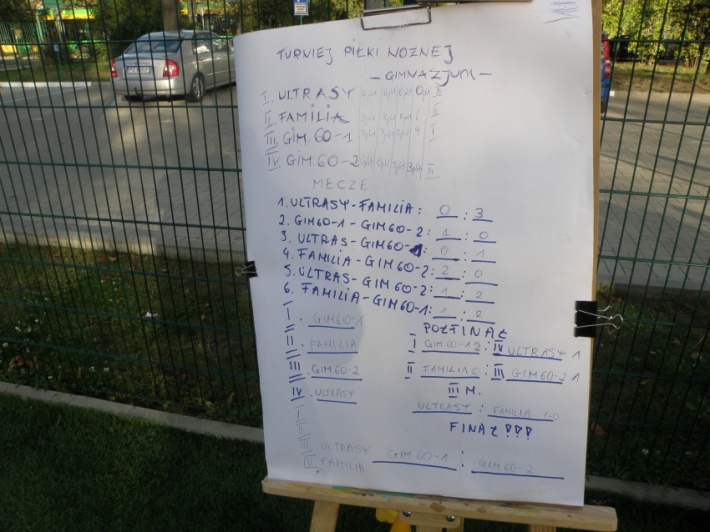 TURNIEJ PIŁKI NOŻNEJ
- GIMNAZJUM -
I. ULTRASY
II. FAMILIA
III GIM. 60-1
IV GIM. 60-2
MECZE
1. ULTRASY-FAMILIA: 0 : 3
2. GIM60-1 - GIM60-2: 1 : 0
3. ULTRAS-GIM60-1: 0 : 1
4. FAMILIA-GIM60-2: 2 : 0
5. ULTRAS-GIM60-2: 1 : 2
6. FAMILIA-GIM60-1: 1 : 2
I. GIM60-1
II. FAMILIA
III. GIM60-2
IV. ULTRASY
PÓŁFINAŁ
I GIM60-1 2 : IV ULTRASY 1
II FAMILIA 0 : III GIM60-2 1
III M.
ULTRASY : FAMILIA 1-0
FINAŁ !!!
GIM 60-1 : GIM 60-2
I
II
III ULTRASY
IV FAMILIA